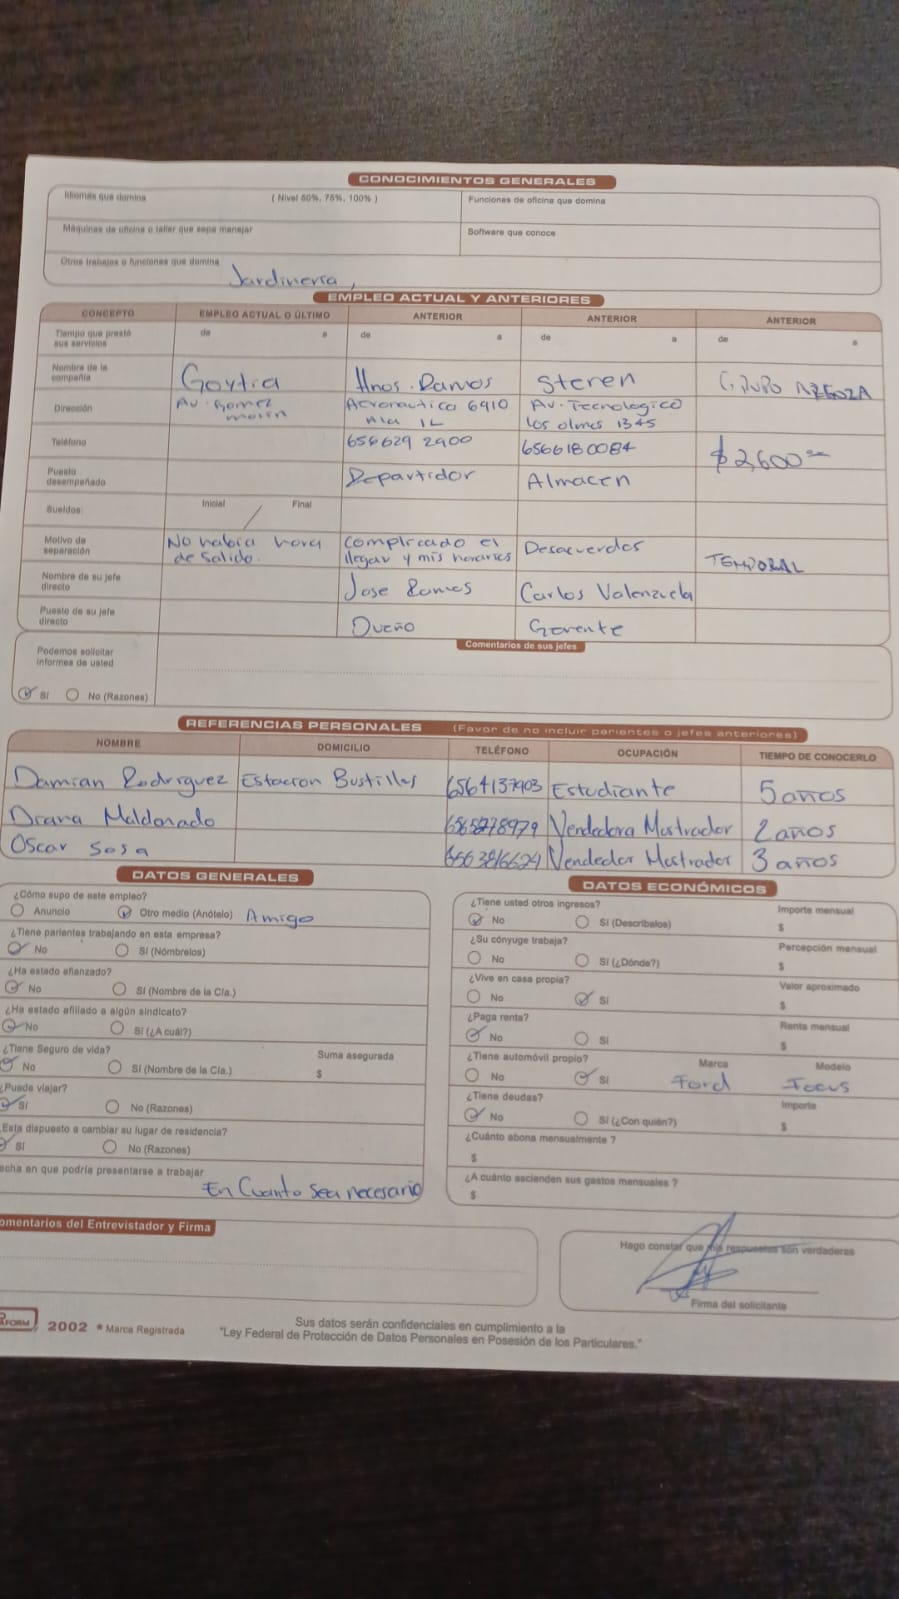 CONOCIMIENTOS GENERALES
Idiomas que domina ( Nivel 50%, 75%, 100% ) Funciones de oficina que domina
Máquinas de oficina o taller que sepa manejar Software que conoce
Otros trabajos o funciones que domina Jardineria,
EMPLEO ACTUAL Y ANTERIORES
CONCEPTO EMPLEO ACTUAL O ÚLTIMO ANTERIOR ANTERIOR ANTERIOR
Tiempo que prestó sus servicios de a de a de a de a
Nombre de la compañía Goytia Hnos. Ramos Steren GRUPO
Dirección Av. Gomez morin Aeronautica 6910 IL Av. Tecnologico los olmos 1345
Teléfono 656629 2900 6566180084 $2,600
Puesto desempeñado Repartidor Almacen
Sueldos Inicial / Final
Motivo de separación No habia hora de salida. complicado el llegar y mis horarios Desacuerdos TEMPORAL
Nombre de su jefe directo Jose Ramos Carlos Valenzuela
Puesto de su jefe directo Dueño Gerente
Podemos solicitar informes de usted Comentarios de sus jefes
Sí No (Razones)
REFERENCIAS PERSONALES (Favor de no incluir parientes o jefes anteriores)
NOMBRE DOMICILIO TELÉFONO OCUPACIÓN TIEMPO DE CONOCERLO
Damian Rodriguez Estacion Bustillos 6564137903 Estudiante 5 años
Diana Maldonado Vendedora Mostrador 2 años
Oscar Sosa Vendedor Mostrador 3 años
DATOS GENERALES
¿Cómo supo de este empleo?
Anuncio Otro medio (Anótelo) Amigo
¿Tiene parientes trabajando en esta empresa?
No Sí (Nómbrelos)
¿Ha estado afianzado?
No Sí (Nombre de la Cía.)
¿Ha estado afiliado a algún sindicato?
No Sí (¿A cuál?)
¿Tiene Seguro de vida? Suma asegurada
No Sí (Nombre de la Cía.) $
¿Puede viajar?
Sí No (Razones)
¿Está dispuesto a cambiar su lugar de residencia?
Sí No (Razones)
echa en que podría presentarse a trabajar
En Cuanto sea necesario
DATOS ECONÓMICOS
¿Tiene usted otros ingresos? Importe mensual
No Sí (Descríbalos) $
¿Su cónyuge trabaja? Percepción mensual
No Sí (¿Dónde?) $
¿Vive en casa propia? Valor aproximado
No Sí $
¿Paga renta? Renta mensual
No Sí $
¿Tiene automóvil propio? Marca Modelo
No Sí Ford Focus
¿Tiene deudas? Importe
No Sí (¿Con quién?) $
¿Cuánto abona mensualmente ?
$
¿A cuánto ascienden sus gastos mensuales ?
$
omentarios del Entrevistador y Firma
Hago constar que mis respuestas son verdaderas
Firma del solicitante
AFORM 2002 * Marca Registrada
Sus datos serán confidenciales en cumplimiento a la
"Ley Federal de Protección de Datos Personales en Posesión de los Particulares."